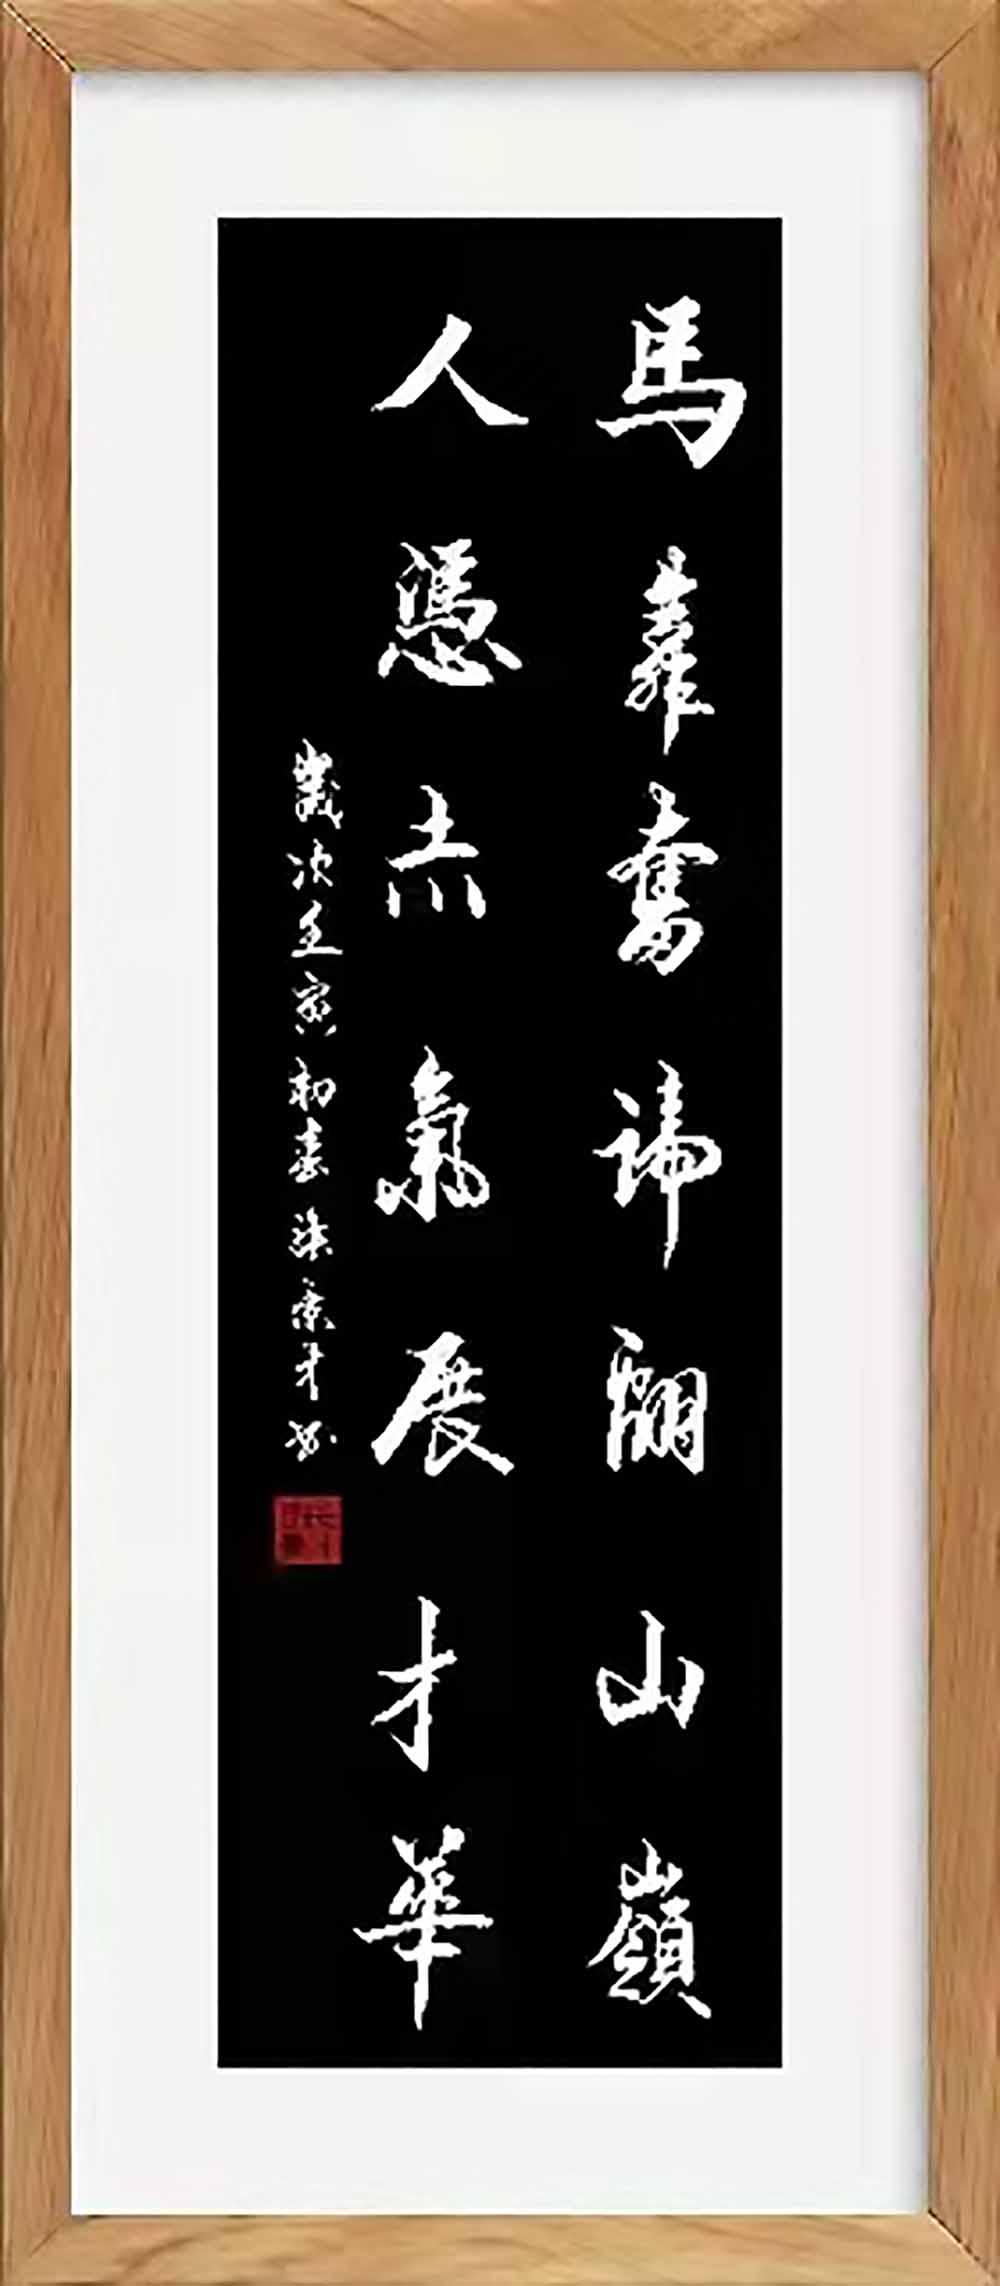 馬靠奮蹄翻山嶺
人憑志氣展才華
歲次壬寅初春梁才书